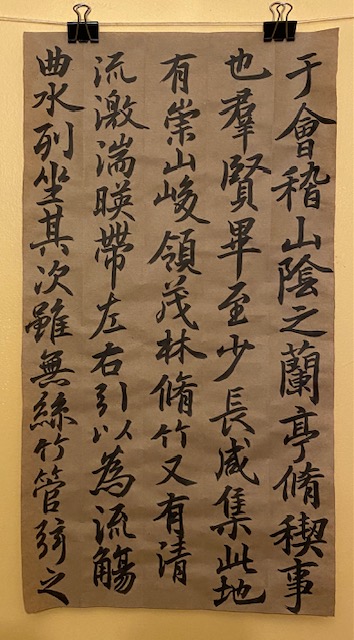 于會稽山陰之蘭亭脩稧事
也羣賢畢至少長咸集此地
有崇山峻領茂林脩竹又有清
流激湍暎帶左右引以為流觴
曲水列坐其次雖無絲竹管弦之